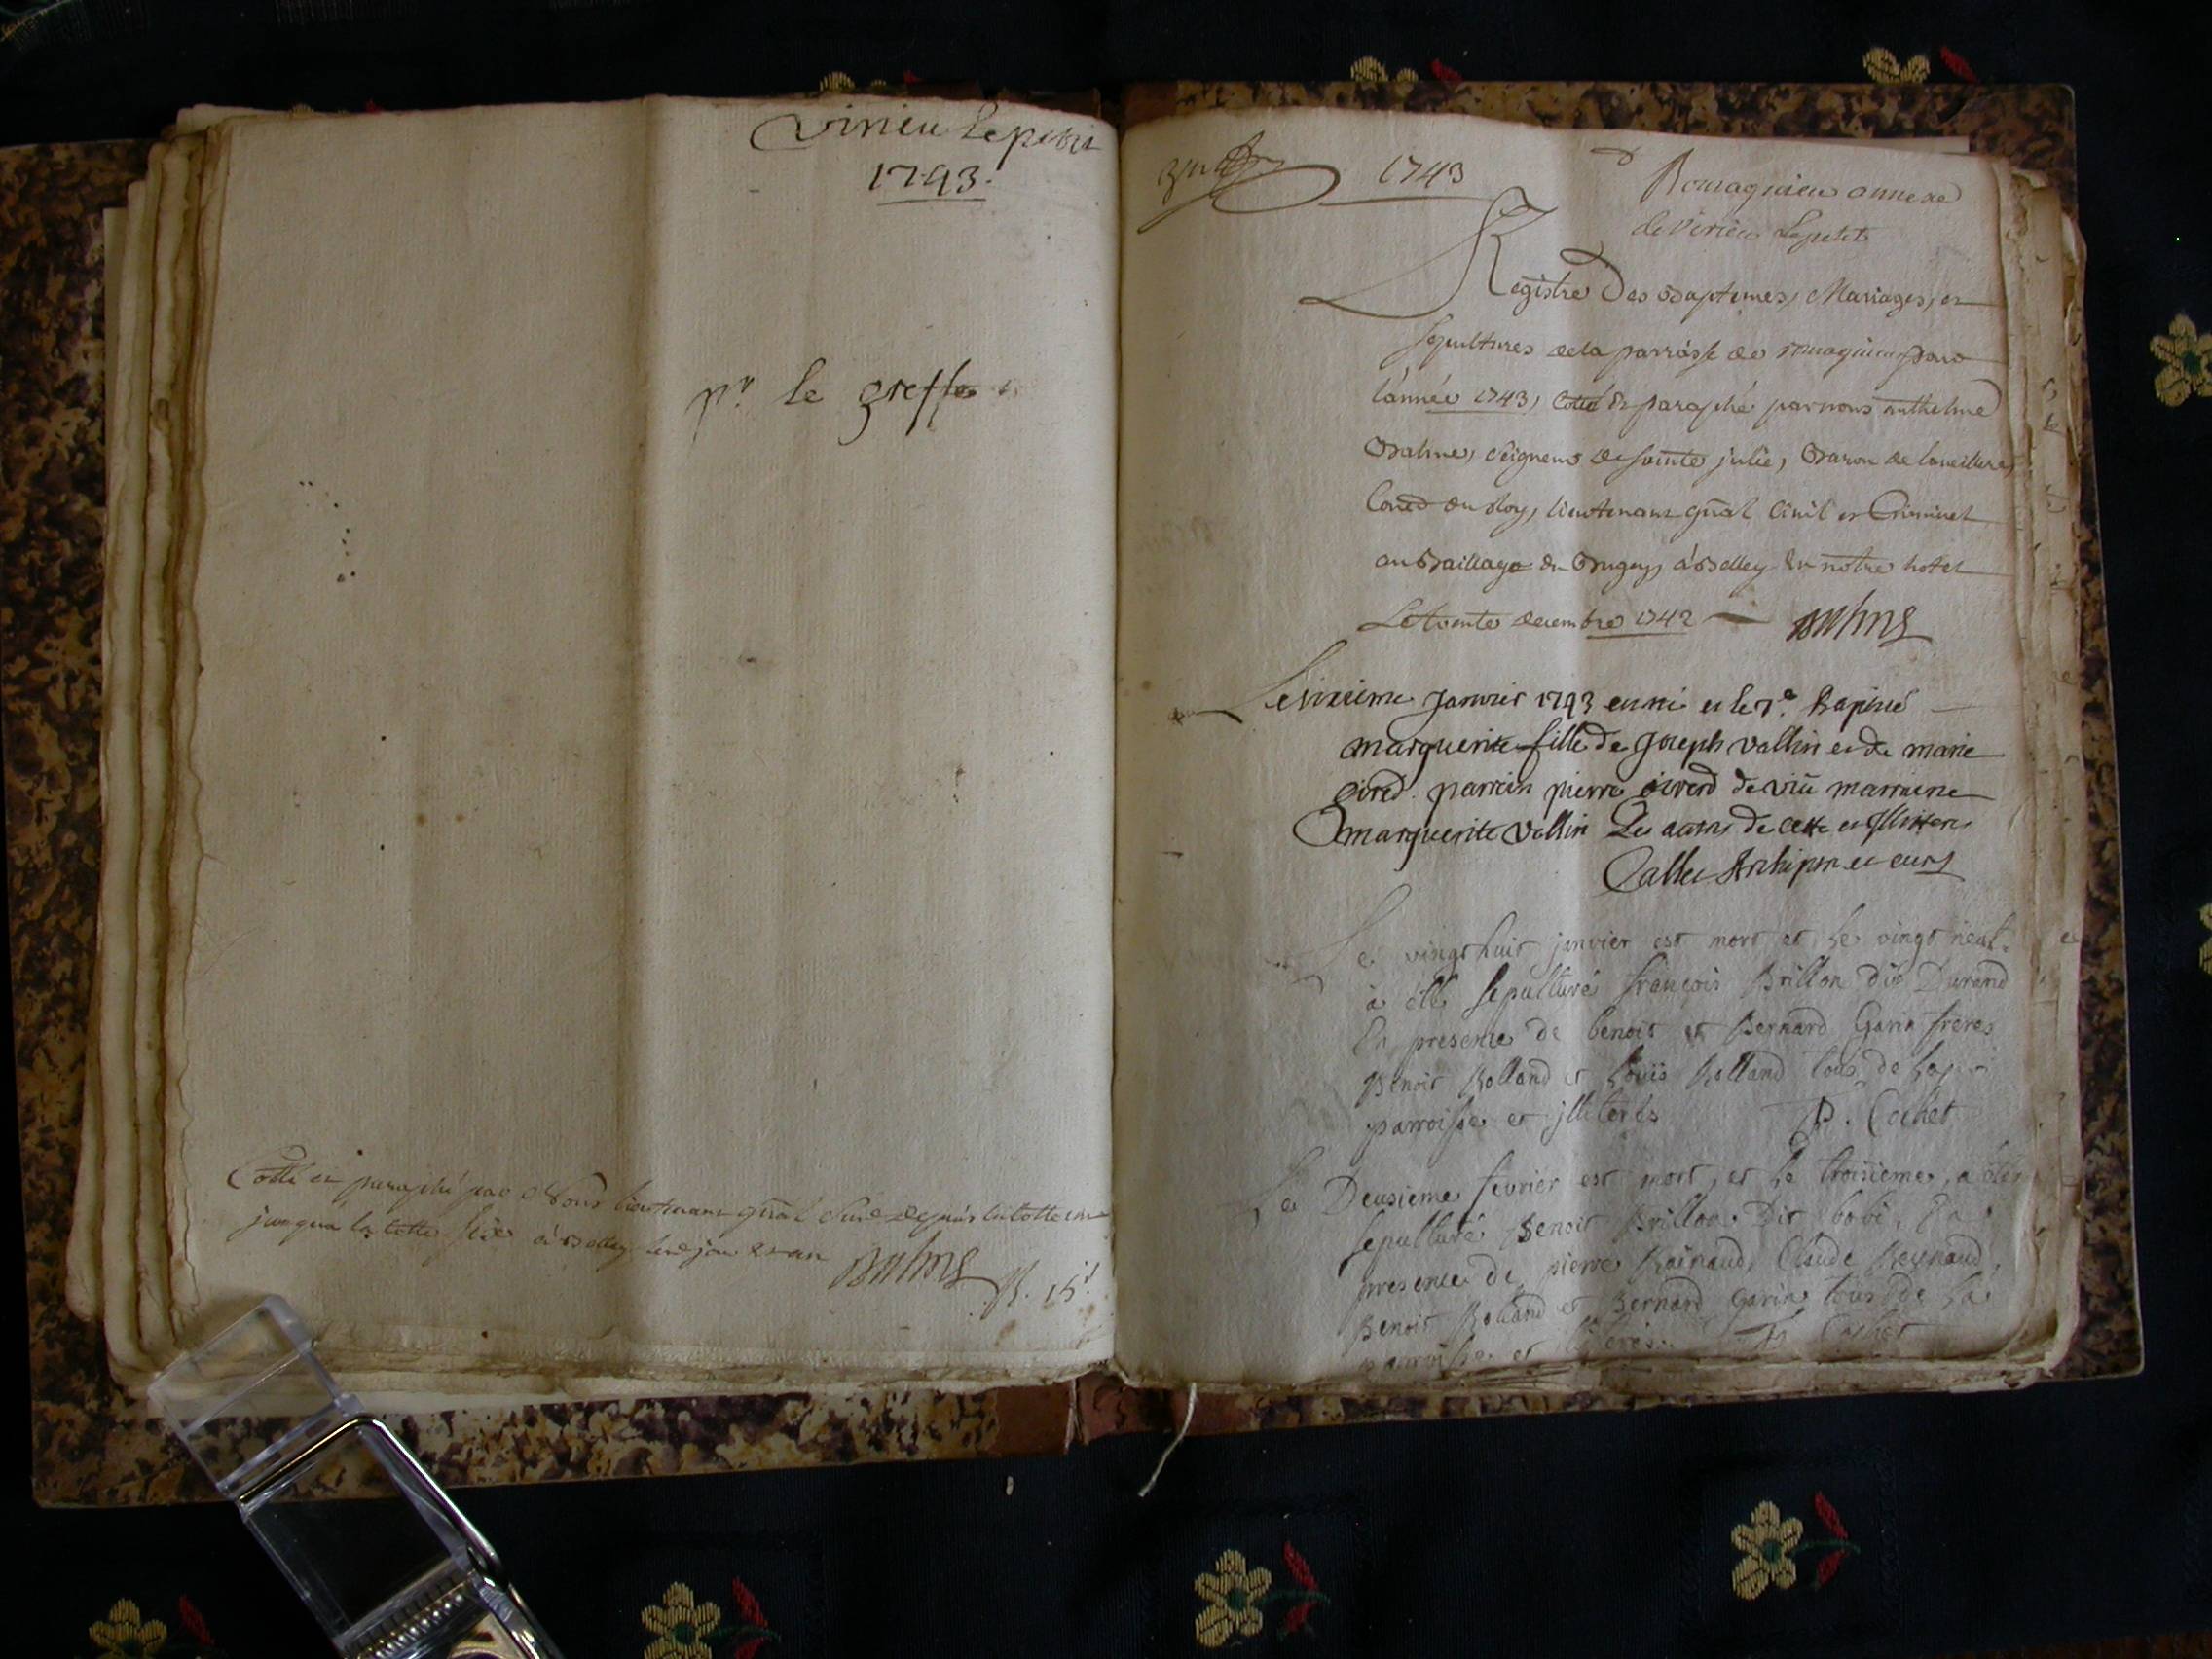 Virieu Le petit
1743.
pr. le greffe
Cotté et paraphé par Nous lieutenant gñal depuis la cotte une
jusqua la cotte six à Belley led. jour et an Balme
R. 15 s
1743
Romagnieu annexe
de Virieu Le petit
Registre Des Baptemes, Mariages, et
sepultures de la parroisse de romagnieu pour
l'année 1743, cotté et paraphé par nous anthelme
Balme, seigneur de sainte julie, Baron de
Conser du Roy, lieutenant gñal Civil et Criminel
au Baillage du Bugey, à Belley En notre hotel
Le trente decembre 1742 Balme
Le sixieme Janvier 1743 est né et le 7e. Baptisé
marguerite fille de Joseph vallin et de marie
parrein pierre de marraine
marguerite vallin Les autres de cette et illiteres
Callet Archiptre et curé
Le vingt huit janvier est mort et Le vingt neuf
à etté sepulturé françois Brillon dit Durand
En presence de benoit et Bernard Garin freres
Benoit Rolland et Louis Rolland tous de La
parroisse et jlliterés P. Cochet
Le Deusieme fevrier est mort, et Le troisieme, a été
sepulturé Benoit Brillon Dit bobi, En
presence de pierre Raynaud, Claude Reynaud,
Benoit Rolland et Bernard Garin tous de La
parroisse et illiterés. P. Cochet